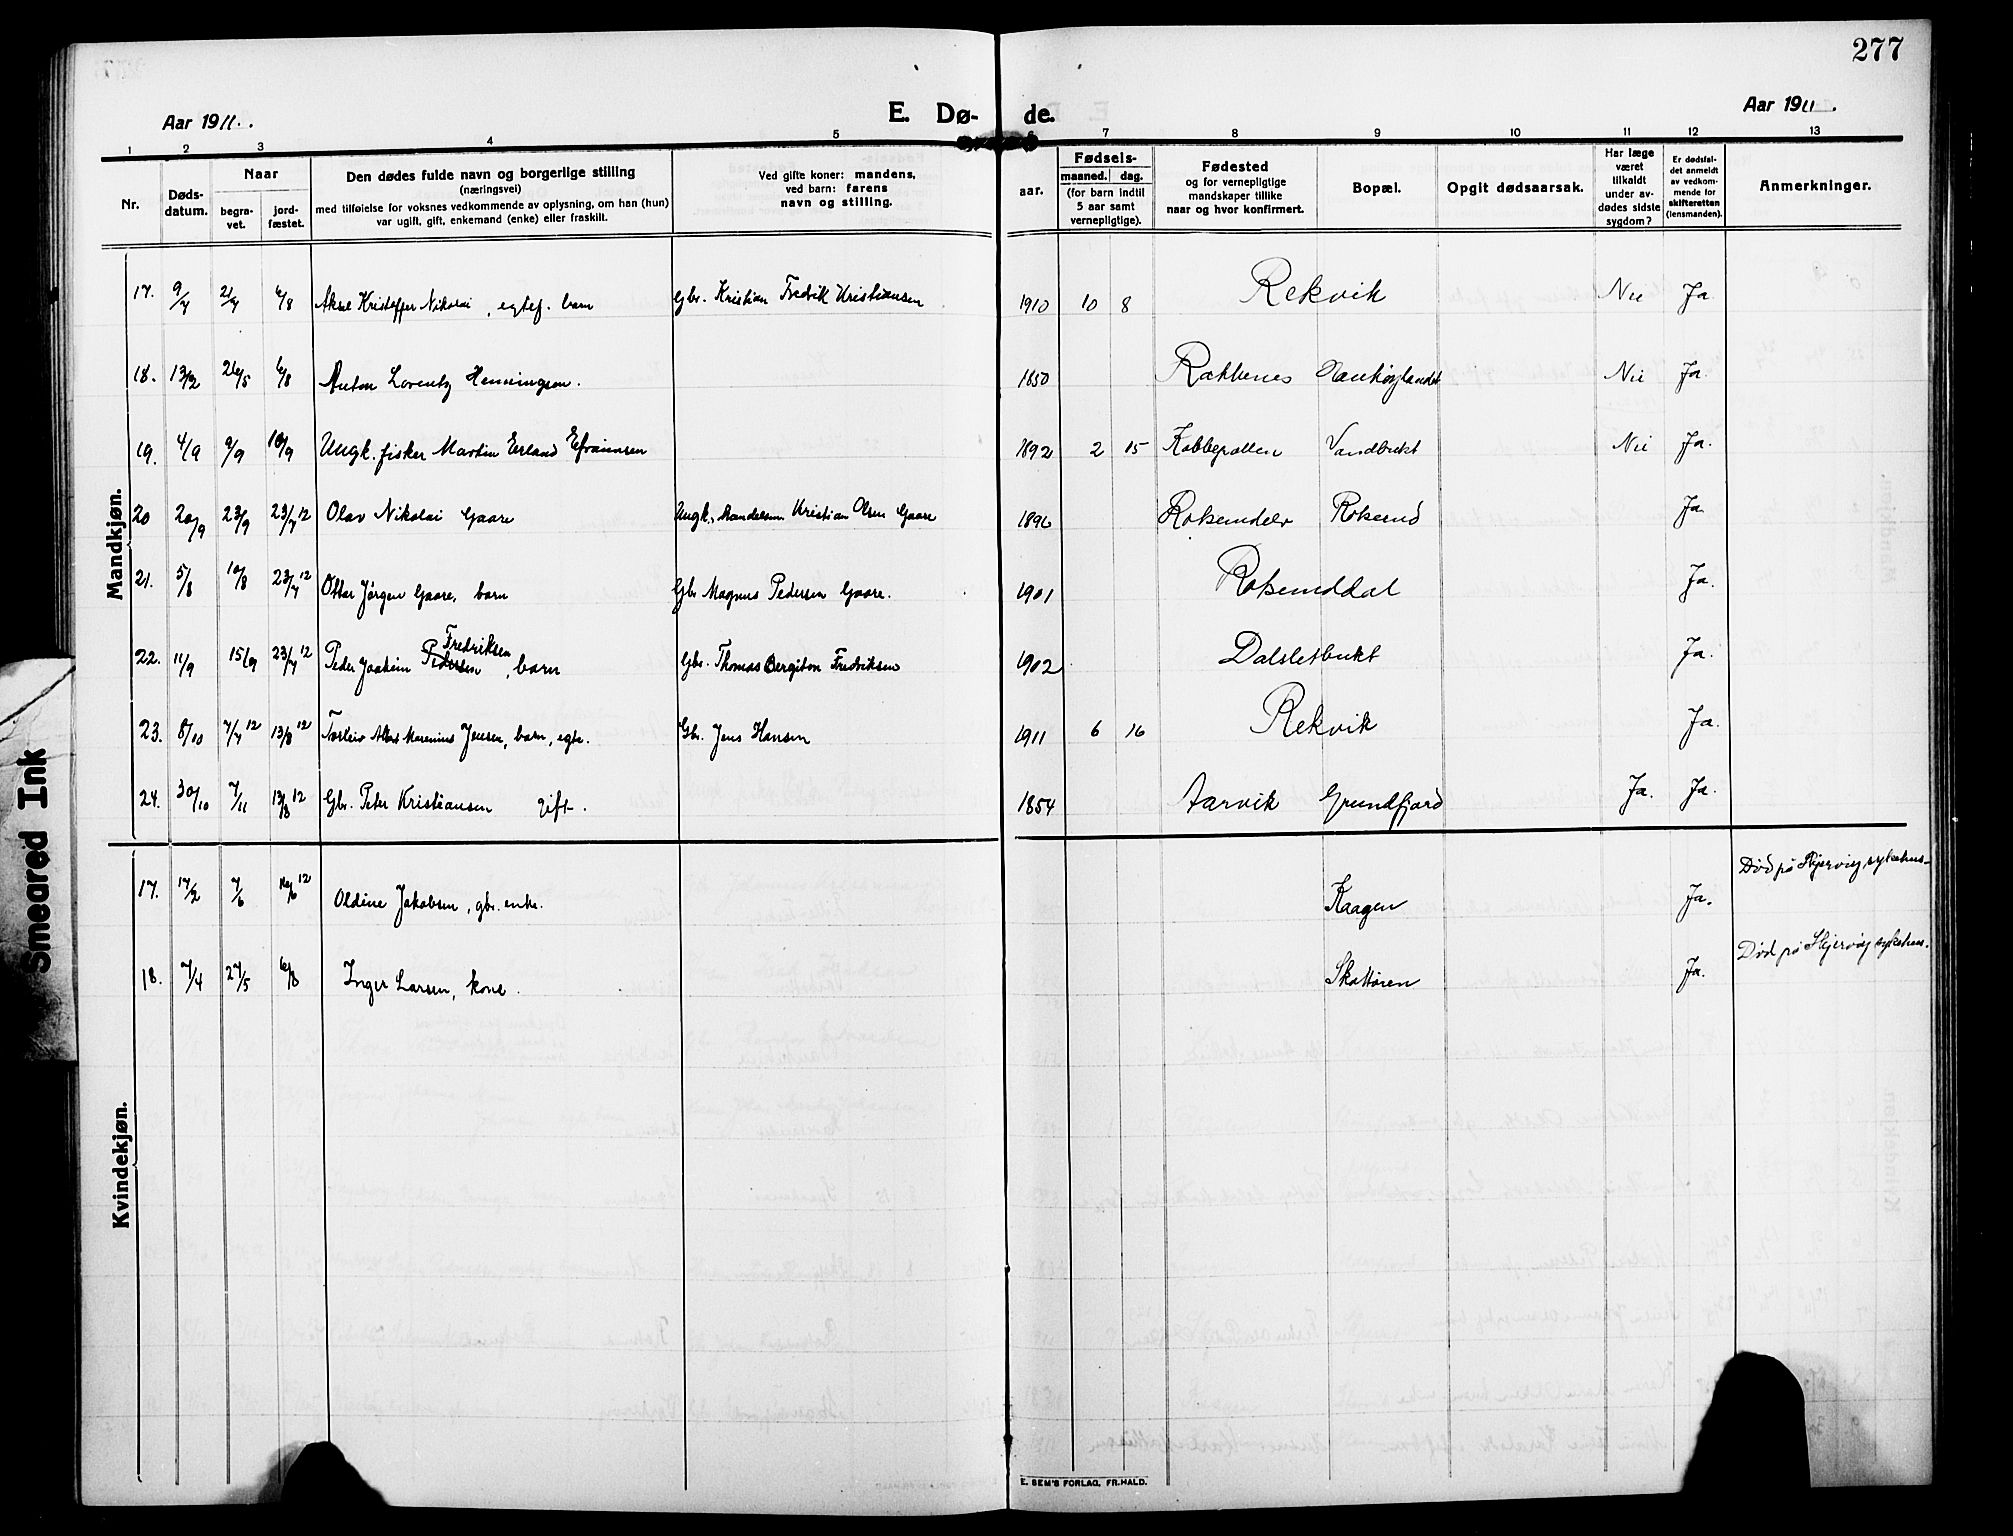 277
Aar 1911.
E. Dø-
de.
Aar 1911.
1 2 3 4 5 7 8 9 10 11 12 13
Nr.
Døds-
datum.
Naar
begra-
vet.
jord-
fæstet.
Den dødes fulde navn og borgerlige stilling
(næringsvei)
med tilføielse for voksnes vedkommende av oplysning, om han (hun)
var ugift, gift, enkemand (enke) eller fraskilt.
Ved gifte koner: mandens,
ved barn: farens
navn og stilling.
aar.
Fødsels-
maaned. dag.
(for barn indtil
5 aar samt
vernepligtige).
Fødested
og for vernepligtige
mandskaper tillike
naar og hvor konfirmert.
Bopæl.
Opgit dødsaarsak.
Har læge
været
tilkaldt
under av-
dødes sidste
sygdom?
Er dødsfal-
det anmeldt
av vedkom-
mende for
skifteretten
(lensmanden).
Anmerkninger.
Mandkjøn.
17. 9/7 21/7 6/8 Aksel Kristoffer Nikolai, egtef. barn Gbr. Kristian Fredrik Kristiansen 1910 10 8 Rekvik Nei Ja.
18. 13/2 26/5 6/8 Anton Lorentz Henningsen. 1850 Rakkenes Nei Ja.
19. 4/9 9/9 10/9 Ungk. fisker Martin Erland Efraimsen 1892 2 15 Kobbepollen Vandbukt Nei Ja.
20 20/9 23/9 23/7 12 Olav Nikolai Gaare Ungk. Handelsm. Kristian Olsen Gaare 1896 Ja
21. 5/8 10/8 23/7 12 Ottar Jørgen Gaare, barn Gbr Magnus Pedersen Gaare. 1901 Ja.
Fredriksen
22. 11/9 15/9 23/7 12 Peder Joakim Pedersen, barn Gbr. Thomas Bergiton Fredriksen 1902 Dalsletbukt Ja.
23. 8/10 7/7 12 13/8 12 Torleiv Albert Marenius Jensen, barn, egte. Gbr. Jens Hansen 1911 6 16 Rekvik Ja.
24. 30/10 7/11 13/8 12 Gbr. Peter Kristiansen gift. 1854 Aarvik Grundfjord Ja. Ja.
Kvindekjøn.
17. 17/2 7/6 16/6 12 Oldine Jakobsen, gbr. enke. Kaagen Ja. Død på Skjervøy sykehus.
18. 7/4 27/5 6/8 Inger Larsen, kone. Skattøren Ja. Død på Skjervøy sykehus.
E. SEM'S FORLAG, FR.HALD.
Smeared Ink